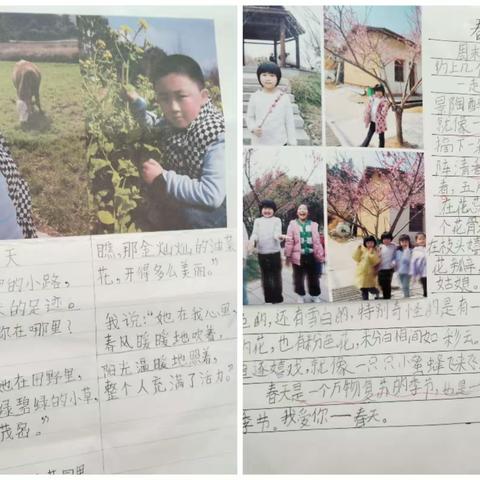 天
的小路，
的足迹。
你在哪里？
她在田野里，
绿碧绿的小草，
茂密。”
瞧，那金灿灿的油菜
花，开得多么美丽。”
我说：“她在我心里，
春风暖暖地吹着，
阳光温暖地照着，
整个人充满了活力。”
春
周末
约上几个
一走
就像
摘下一
阵清香
着，五
在花
个花骨
在枝头嬉
花瓣
姑娘。
色的，还有雪白的，特别奇怪的是有一
花，也有粉色花，粉白相间如彩云。
还嬉戏，就像一只只小蜜蜂飞来飞
春天是一个万物复苏的季节，也是一
季节。我爱你——春天。